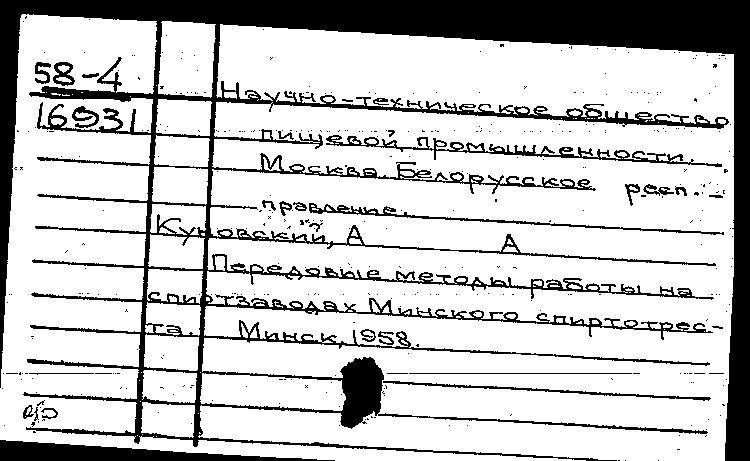 58-4
16931
Научно-техническое общество
пищевой промышленности.
Москва. Белорусское респ.-
правление.
Куновский, А А
Передовые методы работы на
спиртзаводах Минского спиртотрес-
та. Минск, 1958.